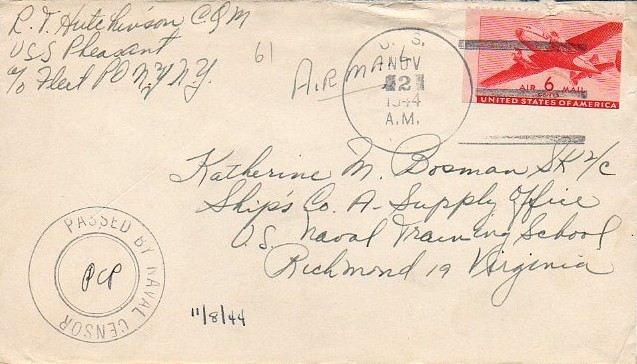 R. T. Hutchinson CQM
USS Pheasant
c/o Fleet PO NY NY.
61
AIR MAIL
U. S.
NOV
2
1944
A.M.
AIR 6 MAIL
CENTS
UNITED STATES OF AMERICA
Katherine M. Bosman SK 2/c
Ship's Co. A- Supply Office
U.S. Naval Training School
Richmond 19 Virginia
PASSED BY NAVAL CENSOR
PCP
11/8/44